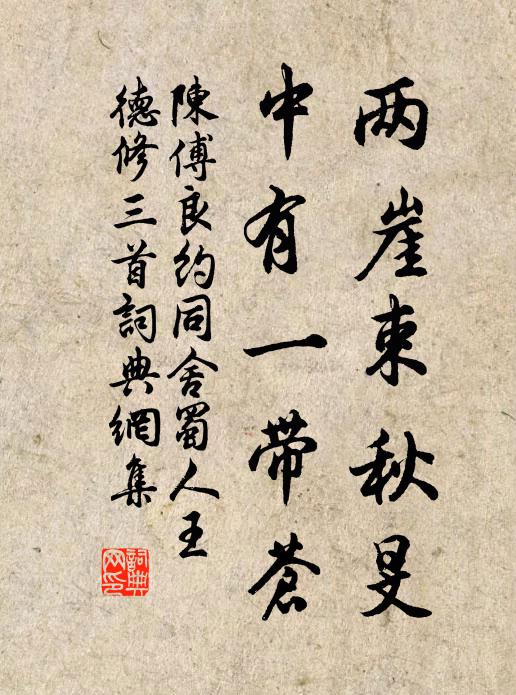 两崖束秋旻
中有一带蒼
陳傅良約同舍蜀人王
德修三首詞典網集
詞典网印